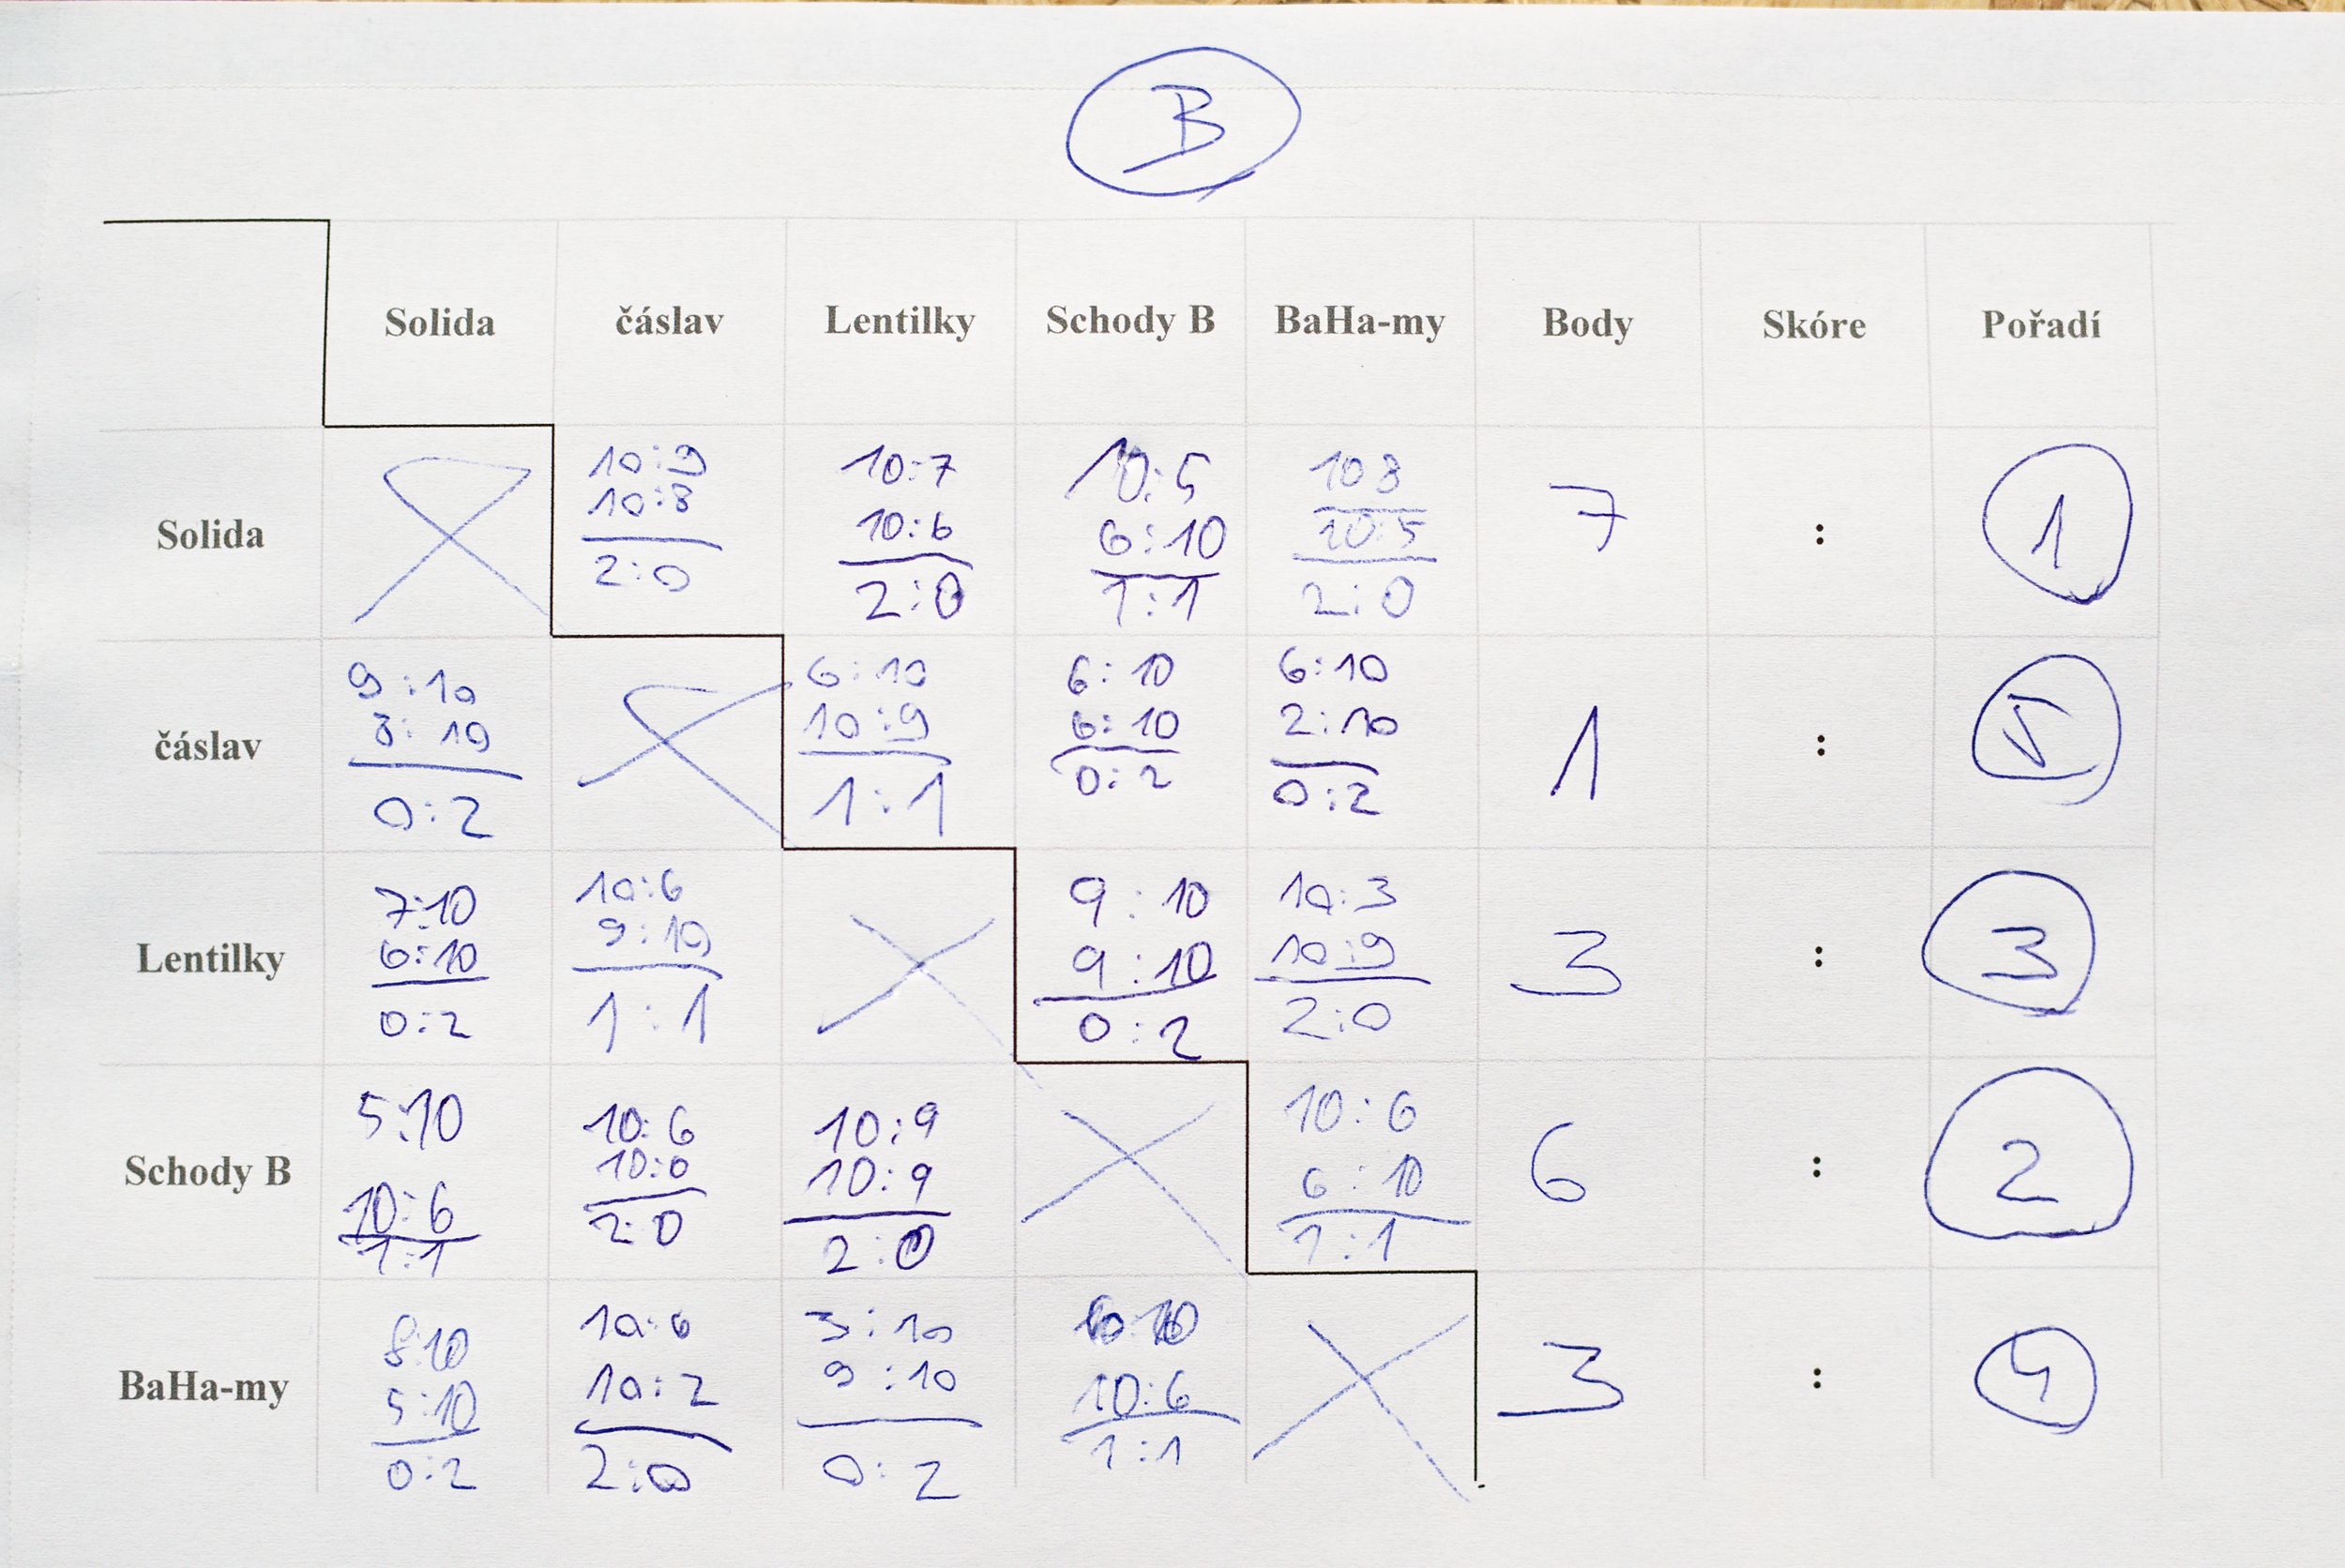 B
Solida čáslav Lentilky Schody B BaHa-my Body Skóre Pořadí
Solida
10:9
10:8
2:0
10:7
10:6
2:0
10:5
6:10
1:1
10 8
10:5
2:0
7
:
1
čáslav
9:10
8:10
0:2
6:10
10:9
1:1
6:10
6:10
0:2
6:10
2:10
0:2
1
:
5
Lentilky
7:10
6:10
0:2
10:6
9:10
1:1
9:10
9:10
0:2
10:3
10:9
2:0
3
:
3
Schody B
5:10
10:6
1:1
10:6
10:6
2:0
10:9
10:9
2:0
10:6
6:10
1:1
6
:
2
BaHa-my
8:10
5:10
0:2
10:6
10:2
2:0
3:10
9:10
0:2
6:10
10:6
1:1
3
:
4